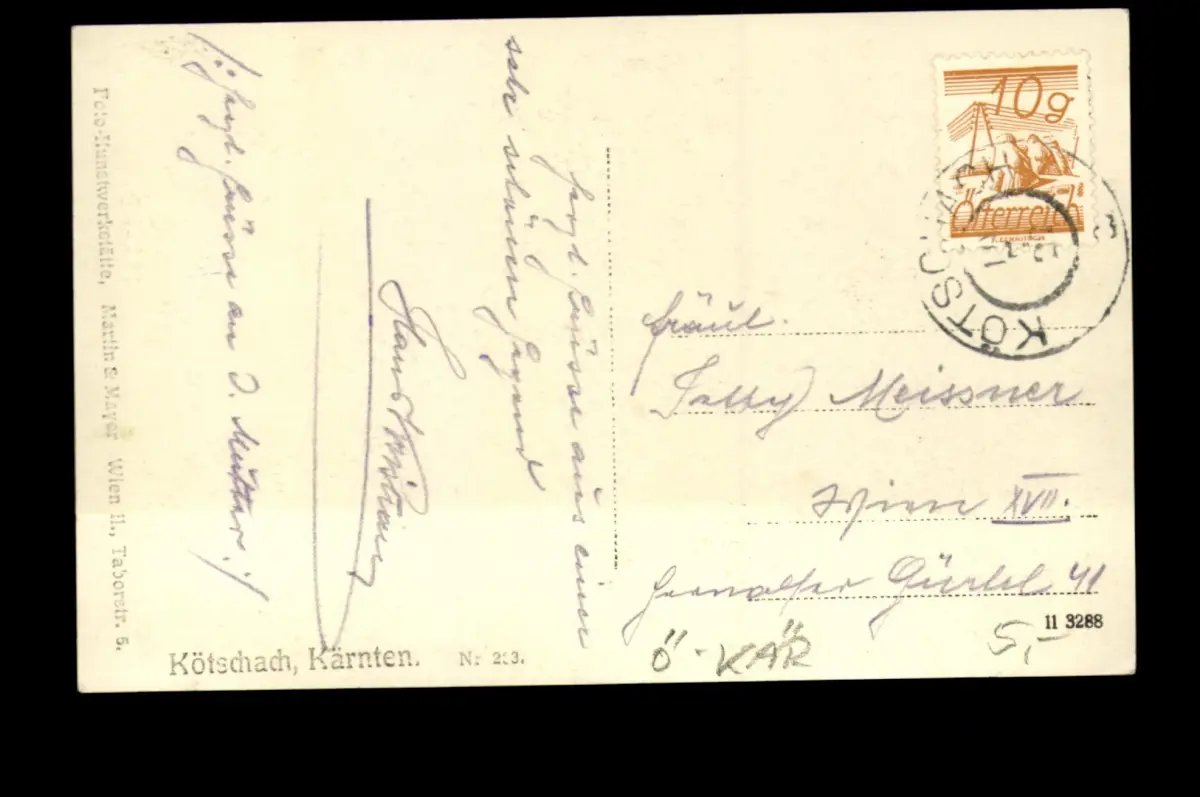 herzl. Grüsse aus einer
sehr schönen Gegend
Hans
/: herzl. Grüsse an d. Mutter :/
Foto-Kunstwerkstätte, Martin & Mayer Wien II., Taborstr. 5.
Kötschach, Kärnten. Nr 293.
10g
Österreich
KÖTSCHACH
Fräul.
Meissner
Wien XVII.
Hernalser Gürtel 41
11 3288
Ö-KÄR
5,-